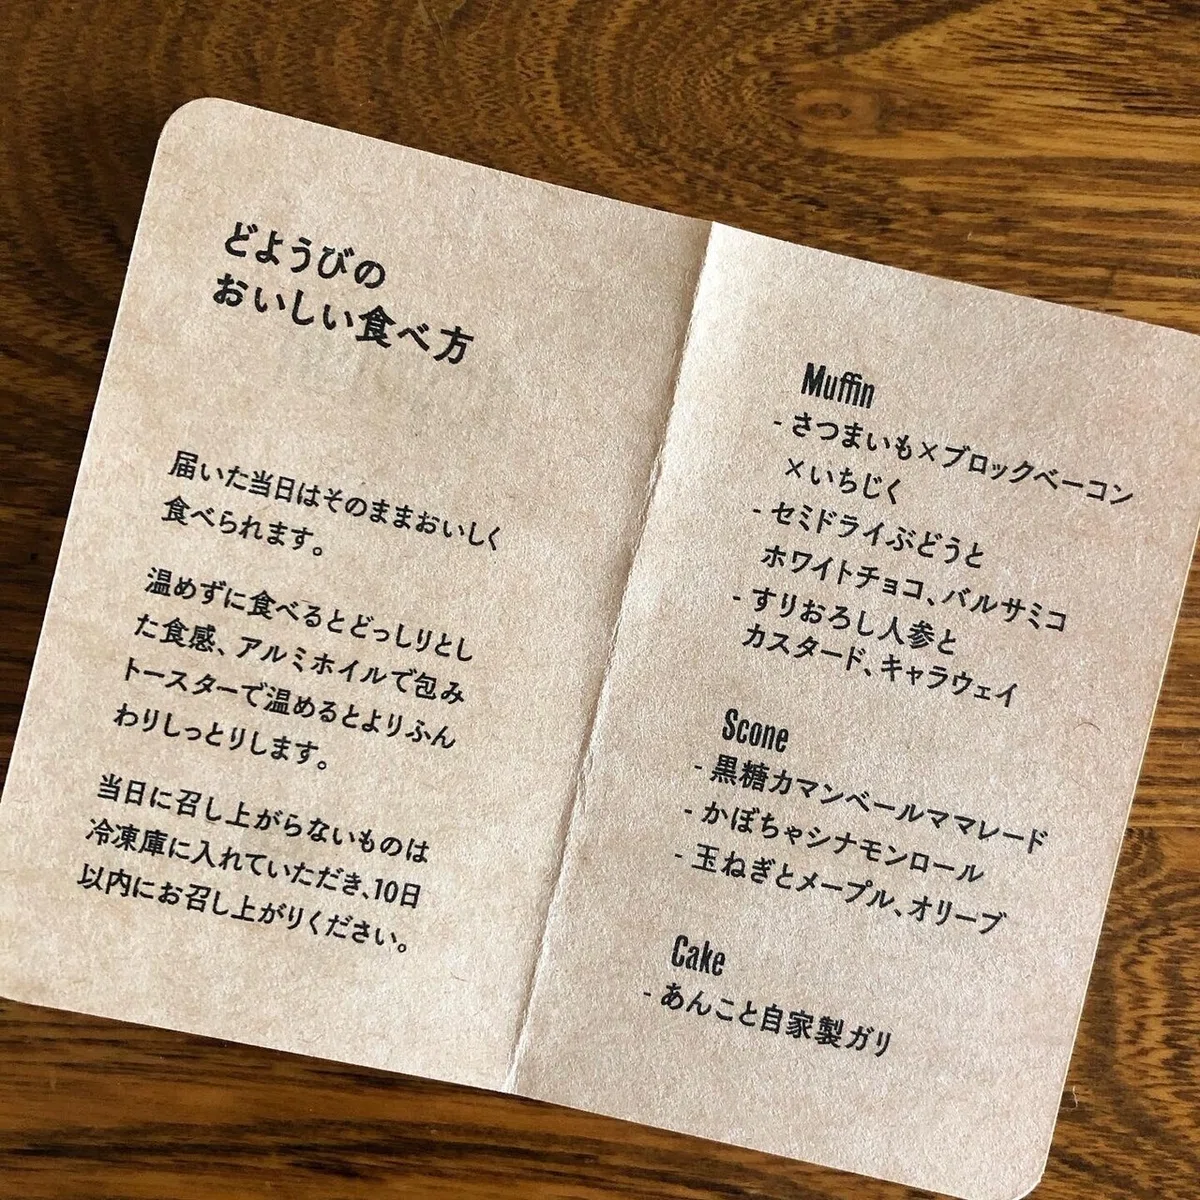 どようびの
おいしい食べ方
届いた当日はそのままおいしく
食べられます。
温めずに食べるとどっしりとし
た食感、アルミホイルで包み
トースターで温めるとよりふん
わりしっとりします。
当日に召し上がらないものは
冷凍庫に入れていただき、10日
以内にお召し上がりください。
Muffin
- さつまいも×ブロックベーコン
×いちじく
- セミドライぶどうと
ホワイトチョコ、バルサミコ
- すりおろし人参と
カスタード、キャラウェイ
Scone
- 黒糖カマンベールママレード
- かぼちゃシナモンロール
- 玉ねぎとメープル、オリーブ
Cake
- あんこと自家製ガリ